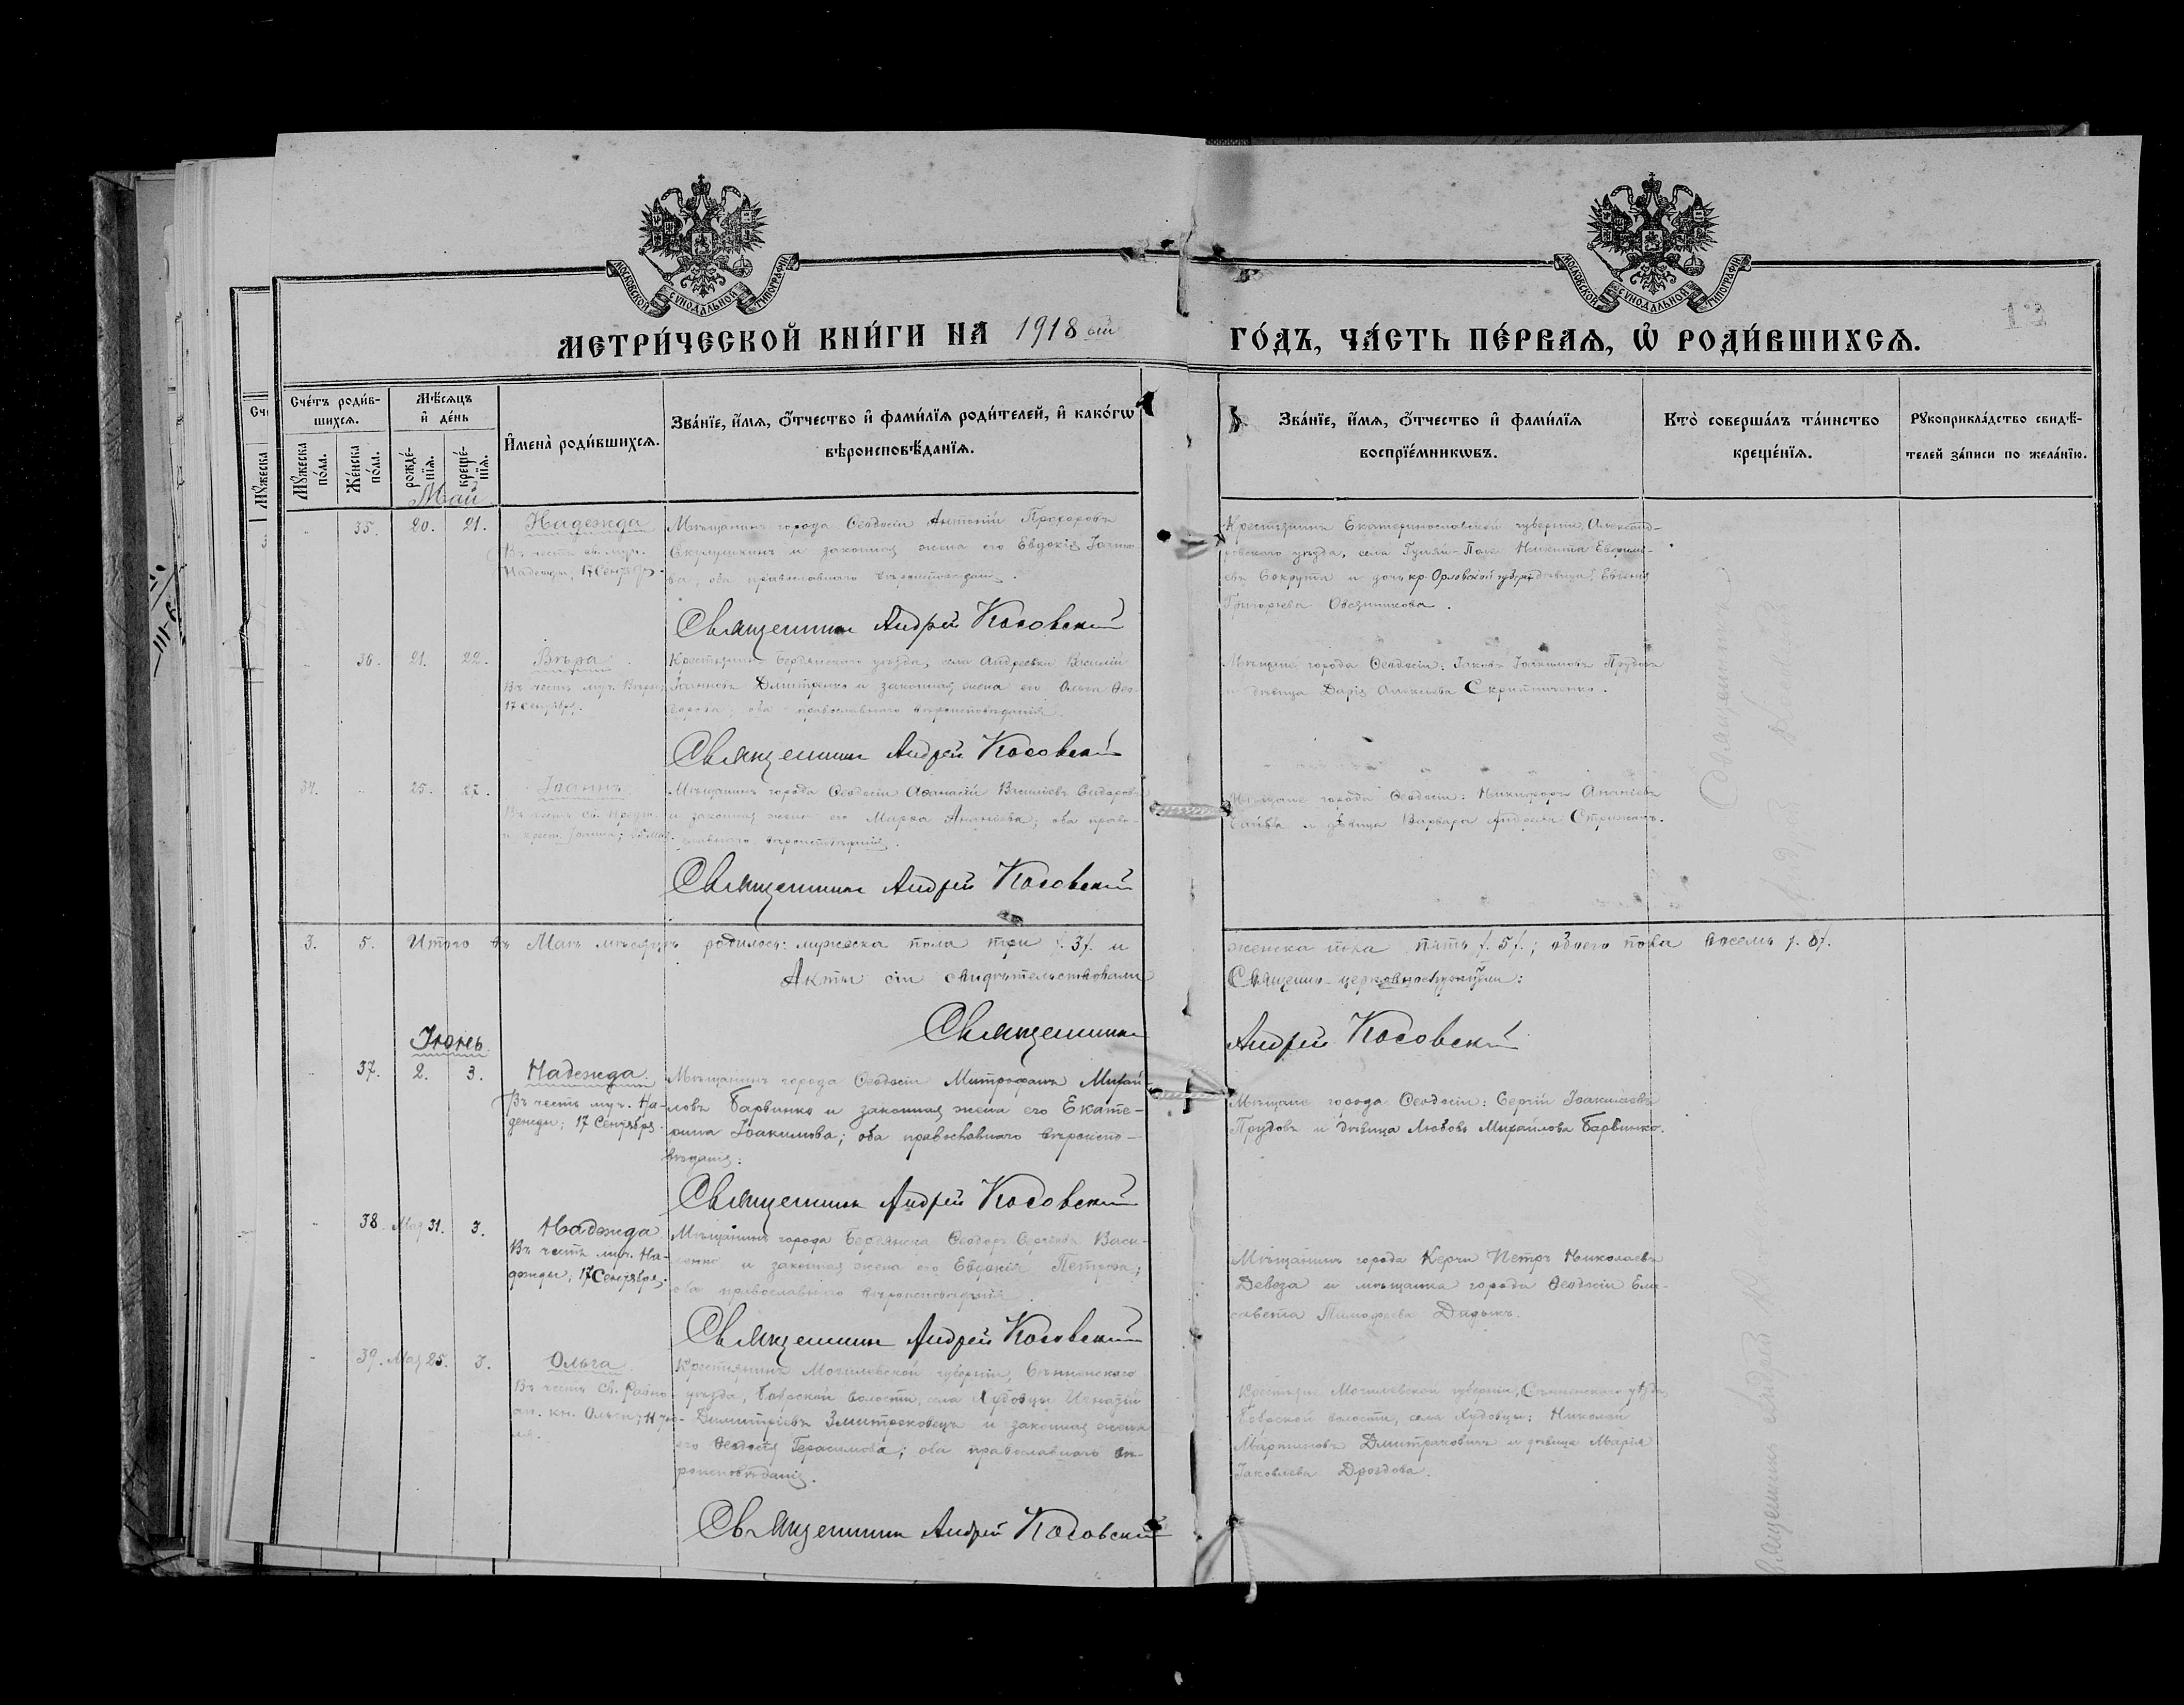 МОСКОВСКОЙ СѴНОДАЛЬНОЙ ТИПОГРАФІИ
МОСКОВСКОЙ СѴНОДАЛЬНОЙ ТИПОГРАФІИ
МЕТРИ́ЧЕСКОЙ КНИ́ГИ НА 1918 ый ГО́ДЪ, ЧА́СТЬ ПЕ́РВАѦ, Ѡ РОДИ́ВШИХСѦ.
Сче́тъ роди́в-
шихся.
Мꙋ́жеска по́ла.
Же́нска по́ла.
Мѣ́сяцъ
и҆ де́нь
рожде́-
нїя.
креще́-
нїя.
И҆мена̀ роди́вшихся.
Зва́нїе, и҆́мя, ѻ҆́тчество и҆ фами́лїя роди́телей, и҆ како́гѡ
вѣроисповѣ́данїя.
Зва́нїе, и҆́мя, ѻ҆́тчество и҆ фами́лїя
воспрїе́мникѡвъ.
Кто̀ соверша́лъ та́инство
креще́нїя.
Рꙋкоприкла́дство свидѣ́-
телей за́писи по жела́нїю.
Май
35. 20. 21. Надежда
Въ честь св. муч.
Надежды, 17 Сентября.
Мѣщанинъ города Ѳеодосіи Антоній Прохоровъ
и законная жена его Евдокія Іоанно-
ва, оба православнаго вѣроисповѣданія.
Священникъ Андрей Косовскій
Крестьянинъ Екатеринославской губерніи, Александ-
ровскаго уѣзда, села Гуляй-Поле Никита Евфимі-
евъ Сокрута и дочь кр. Орловской губерн. дѣвица Евгенія
Григорьева Овсянникова.
36. 21. 22. Вѣра
Въ честь муч. Вѣры,
17 Сентября.
Крестьянинъ Бердянскаго уѣзда, села Андреевки Василій
Іоанновъ Дмитренко и законная жена его Ольга Ѳео-
дорова, оба православнаго вѣроисповѣданія.
Священникъ Андрей Косовскій
Мѣщане города Ѳеодосіи: Іаковъ Іоакимовъ Прудовъ
и дѣвица Дарія Алексіева Скрипниченко.
34. 25. 27. Іоаннъ
Мѣщанинъ города Ѳеодосіи Аѳанасій Василіевъ Сидоровъ
и законная жена его Марѳа Ананіева; оба право-
славнаго вѣроисповѣданія.
Священникъ Андрей Косовскій
Мѣщане города Ѳеодосіи: Никифоръ Ананіевъ
и дѣвица Варвара Андреева Стрижакъ.
3. 5. Итого въ Маѣ мѣсяцѣ родилось: мужеска пола три /3/ и женска пола пять /5/; обоего пола восемь /8/.
Акты сіи свидѣтельствовали Священно-церковнослужители:
Священникъ Андрей Косовскій
Іюнь
37. 2. 3. Надежда
Въ честь муч. На-
дежды; 17 Сентября.
Мѣщанинъ города Ѳеодосіи Митрофанъ Михай-
ловъ Барвинко и законная жена его Екате-
рина Іоакимова; оба православнаго вѣроиспо-
вѣданія:
Священникъ Андрей Косовскій
Мѣщане города Ѳеодосіи: Сергій Іоакимовъ
Прудовъ и дѣвица Любовь Михайлова Барвинко.
38. Мая 31. 3. Надежда
Въ честь муч. На-
дежды; 17 Сентября.
Мѣщанинъ города Бердянска Ѳеодоръ Сергѣевъ Васи-
ленко и законная жена его Евдокія Петрова;
оба православнаго вѣроисповѣданія.
Священникъ Андрей Косовскій
Мѣщанинъ города Керчи Петръ Николаевъ
Девоза и мѣщанка города Ѳеодосіи Ели-
савета Тимоѳеева Дидыкъ.
39. Мая 25. 3. Ольга
Въ честь св. Равно-
ап. кн. Ольги; 11 Ію-
ля.
Крестьянинъ Могилевской губерніи, Сѣннинскаго
уѣзда, Бобрской волости, села Худовцы Игнатій
Димитріевъ Змитроковецъ и законная жена
его Ѳеодосія Герасимова; оба православнаго вѣ-
роисповѣданія.
Священникъ Андрей Косовскій
Крестьяне Могилевской губерніи, Сѣннинскаго уѣзда,
Бобрской волости, села Худовцы: Николай
Мартиновъ Дмитраковичъ и дѣвица Марія
Іаковлева Дроздова.
Священникъ Андрей